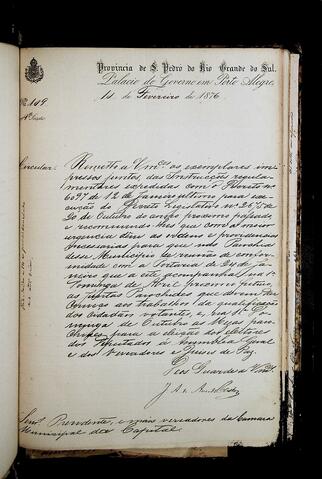 Provincia de S. Pedro do Rio Grande do Sul.
Palacio do Governo em Porto Alegre,
14 de Fevereiro de 1876
Nº 149
4ª Secção
Circular
Remetto a Vmces os exemplares im-
pressos juntos das Instrucções regula-
mentares expedidas com o Decreto nº
6097 de 12 de Janeiro ultimo para exe-
cução do Decreto Legislativo nº 2675 de
20 de Outubro do anno proximo passado,
e recommendo-lhes que com a maior
urgencia dêm as ordens e providencias
necessarias para que nas Parochias
desse Municipio se reunão de confor-
midade com a Portaria de hoje,
que a esta acompanha, na 1ª
Dominga de Abril proximo futuro,
as Juntas Parochiaes que devem dar
começo aos trabalhos da qualificação
dos cidadãos votantes, e na 1ª Do-
minga de Outubro as Mezas Paro-
chiaes para a eleição dos eleitores
dos Deputados á Assembléa Geral
e dos Vereadores e Juizes de Paz.
Deos Guarde a Vmces
Senres Presidente, e mais vereadores da Camara
Municipal da Capital.